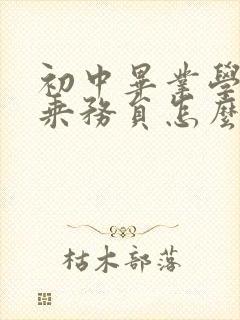 初中畢業學
乘務員怎麼
枯木部落